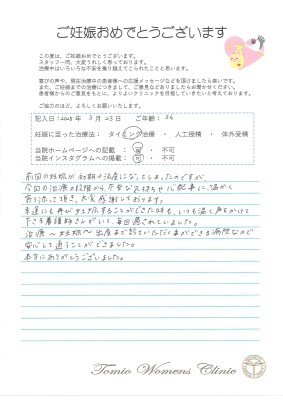 ご妊娠おめでとうございます
この度は、ご妊娠おめでとうございます。
スタッフ一同、大変うれしく思っております。
治療中はいろいろな不安を乗り越えてこられたことと思います。
喜びの声や、現在治療中の患者様への応援メッセージなどを頂けましたら幸いです。
また、ご妊娠までの治療につきまして、ご意見などありましたらお聞かせください。
患者様からのご意見をもとに、よりよいクリニックを目指していきたいと考えております。
ご協力のほど、よろしくお願いいたします。
記入日：2024年 3月 25日 ご年齢：36
妊娠に至った治療法：タイミング治療 ・ 人工授精 ・ 体外受精
当院ホームページへの記載：可 ・ 不可
当院インスタグラムへの掲載：可 ・ 不可
前回の妊娠が初期の流産になってしまったのですが、
今回の治療の段階から、不安な気持ちや心配事に、温かく
寄り添って頂き、大変感謝しております。
幸運にも再び妊娠することができた時も、いつも温く声をかけて
下さる看護師さんがいて、毎回癒されていました。
治療～妊娠～出産まで診ていただく事ができる病院なので
安心して通うことができました。
本当にありがとうございました。
Tomio Womens Clinic